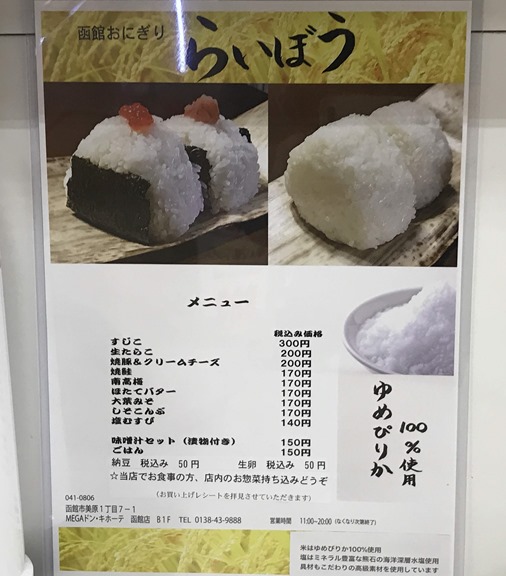 函館おにぎり らいぼう
メニュー
税込み価格
すじこ 300円
生たらこ 200円
焼豚&クリームチーズ 200円
焼鮭 170円
南高梅 170円
ほたてバター 170円
大葉みそ 170円
しそこんぶ 170円
塩むすび 140円
味噌汁セット（漬物付き） 150円
ごはん 150円
納豆 税込み 50円 生卵 税込み 50円
☆当店でお食事の方、店内のお惣菜持ち込みどうぞ
（お買い上げレシートを拝見させていただきます）
ゆめぴりか
100%使用
041-0806
函館市美原1丁目7－1
MEGAドン・キホーテ 函館店 B1F TEL 0138-43-9888 営業時間 11:00~20:00（なくなり次第終了）
米はゆめぴりか100%使用
塩はミネラル豊富な熊石の海洋深層水塩使用
具材もこだわりの高級素材を使用しています